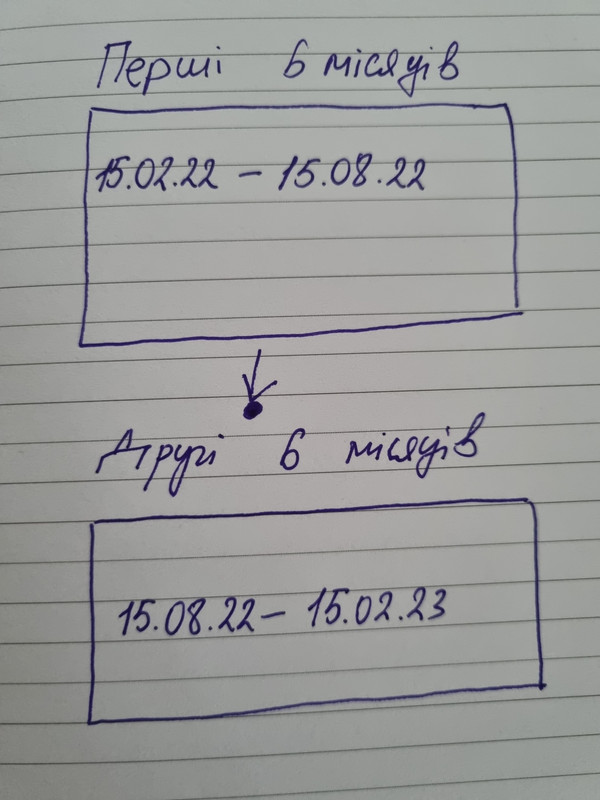 Перші 6 місяців
15.02.22 – 15.08.22
Другі 6 місяців
15.08.22 – 15.02.23